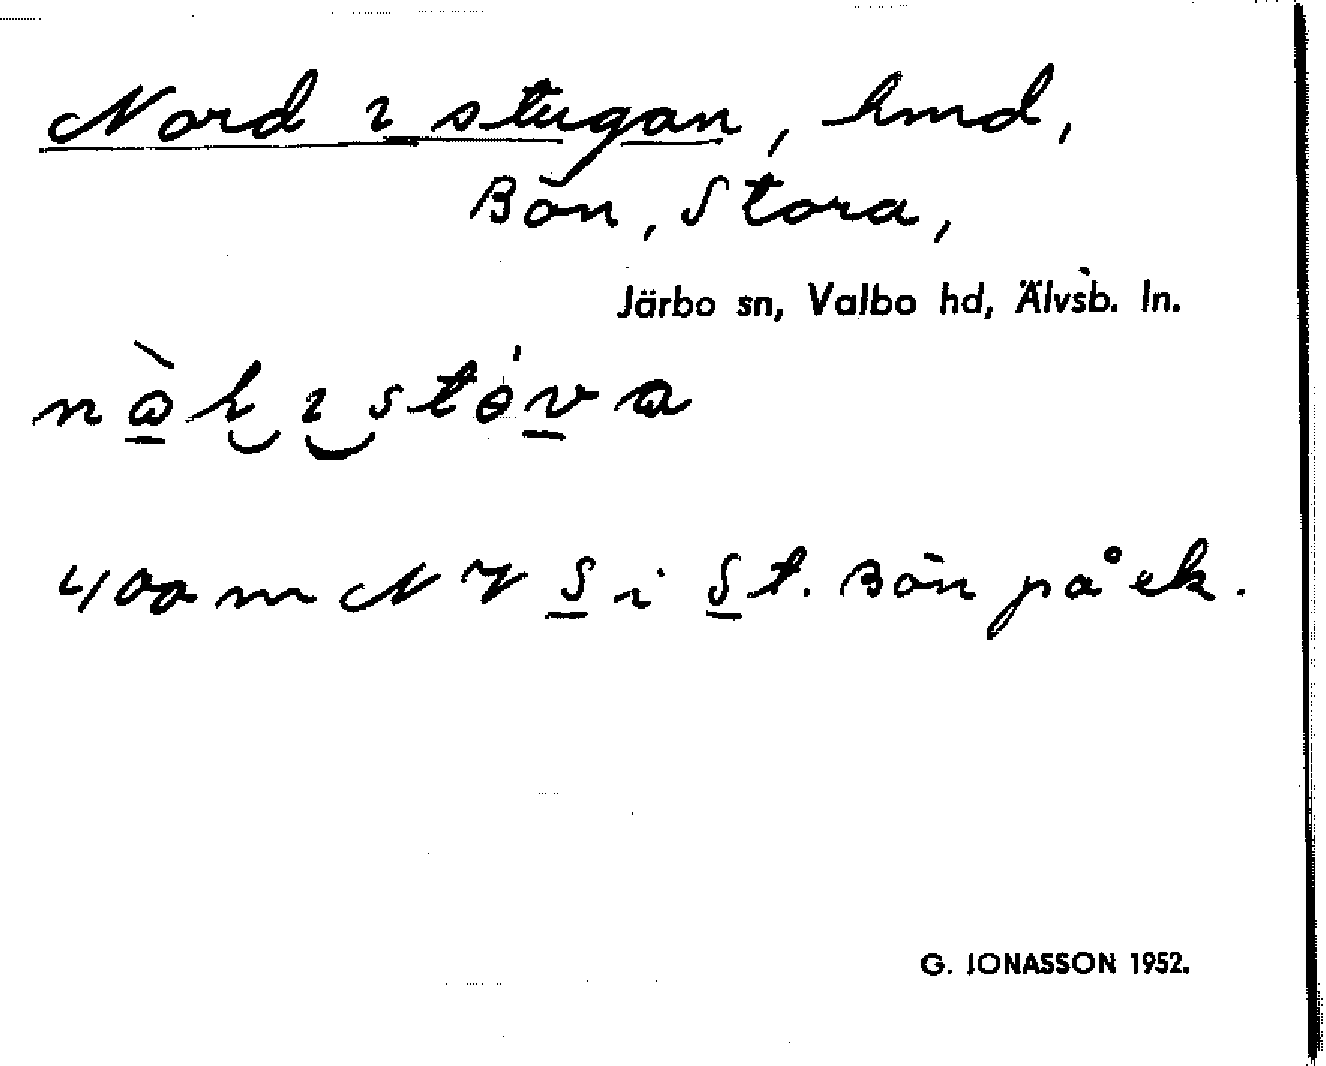 Nord i stugan, hmd,
Bön, Stora,
Järbo sn, Valbo hd, Älvsb. ln.
400 m NV S i St. Bön på ek.
G. JONASSON 1952.